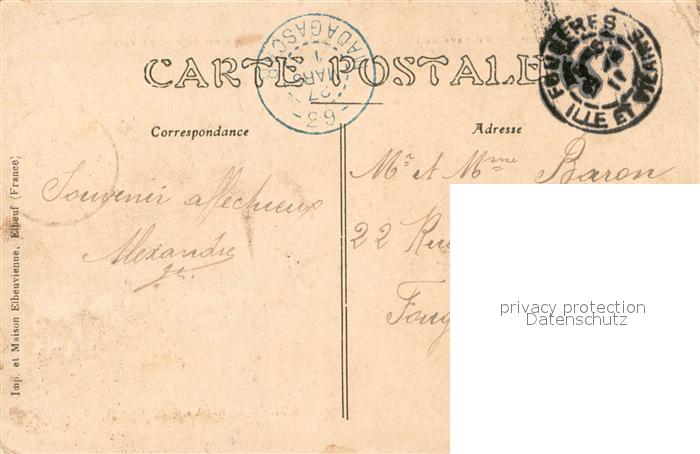 CARTE POSTALE
MADAGASCAR
1
MARS
27
63
FOUGÈRES
ILLE ET VILAINE
Correspondance
Adresse
Souvenir affectueux
Alexandre
Mr et Mme Baron
22 Rue
Foug
Imp. et Maison Elbeuvienne, Elbeuf (France)
privacy protection
Datenschutz